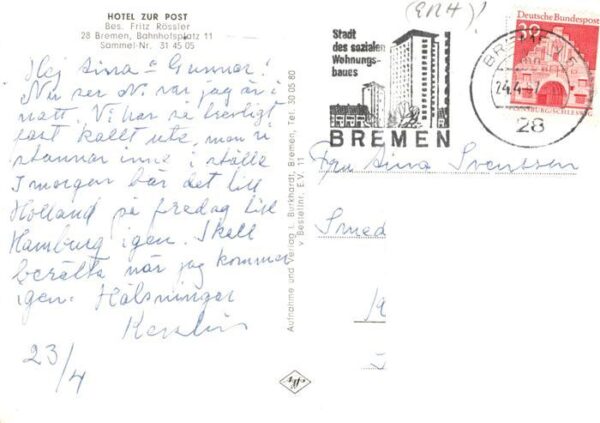 HOTEL ZUR POST
Bes. Fritz Rössler
28 Bremen, Bahnhofsplatz 11
Sammel-Nr. 31 45 05
Hej Aina o Gunnar!
Nu ser Ni var jag är i
natt. Vi har så herligt
fast kallt ute, men vi
stannar inne i ställe
I morgon bär det till
Holland på fredag till
Hamburg igen. Skall
berätta när jag kommer
igen. Hälsningar
Kerstin
23/4
Aufnahme und Verlag L. Burkhardt, Bremen, Tel. 30 05 80
v Bestellnr. E.V. 11
(ERH)!
Stadt
des sozialen
Wohnungs-
baues
BREMEN
Deutsche Bundespost
30
BREMEN
24.4.67
28
Fru Aina Svensson
Smed